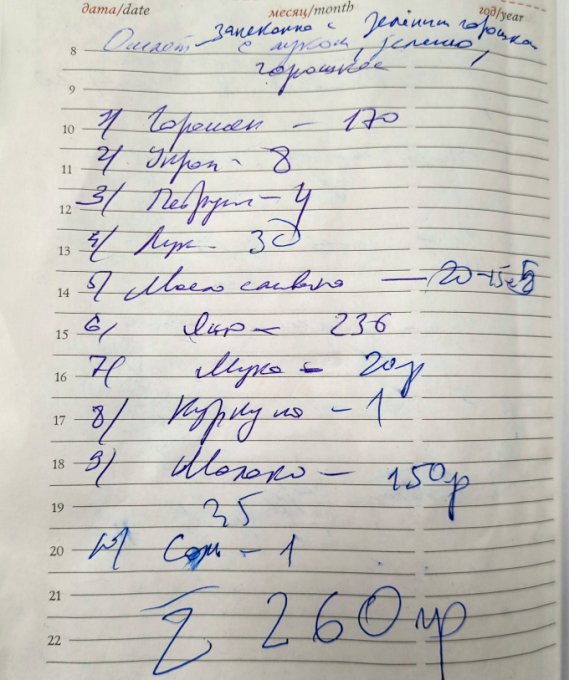 дата/date месяц/month год/year
8 Омлет-запеканка с зелёным горошком
с луком, зеленью,
горошком
9
10 1/ Горошек – 170
11 2/ Укроп - 8
12 3/ Петрушка – 4
13 4/ Лук - 30
14 5/ Масло сливочно — 20-15=5
15 6/ Яйцо – 236
16 7/ Мука – 20гр
17 8/ Куркума – 1
18 9/ Молоко – 150гр
19 35
20 10/ Соль – 1
21 Σ 260гр
22